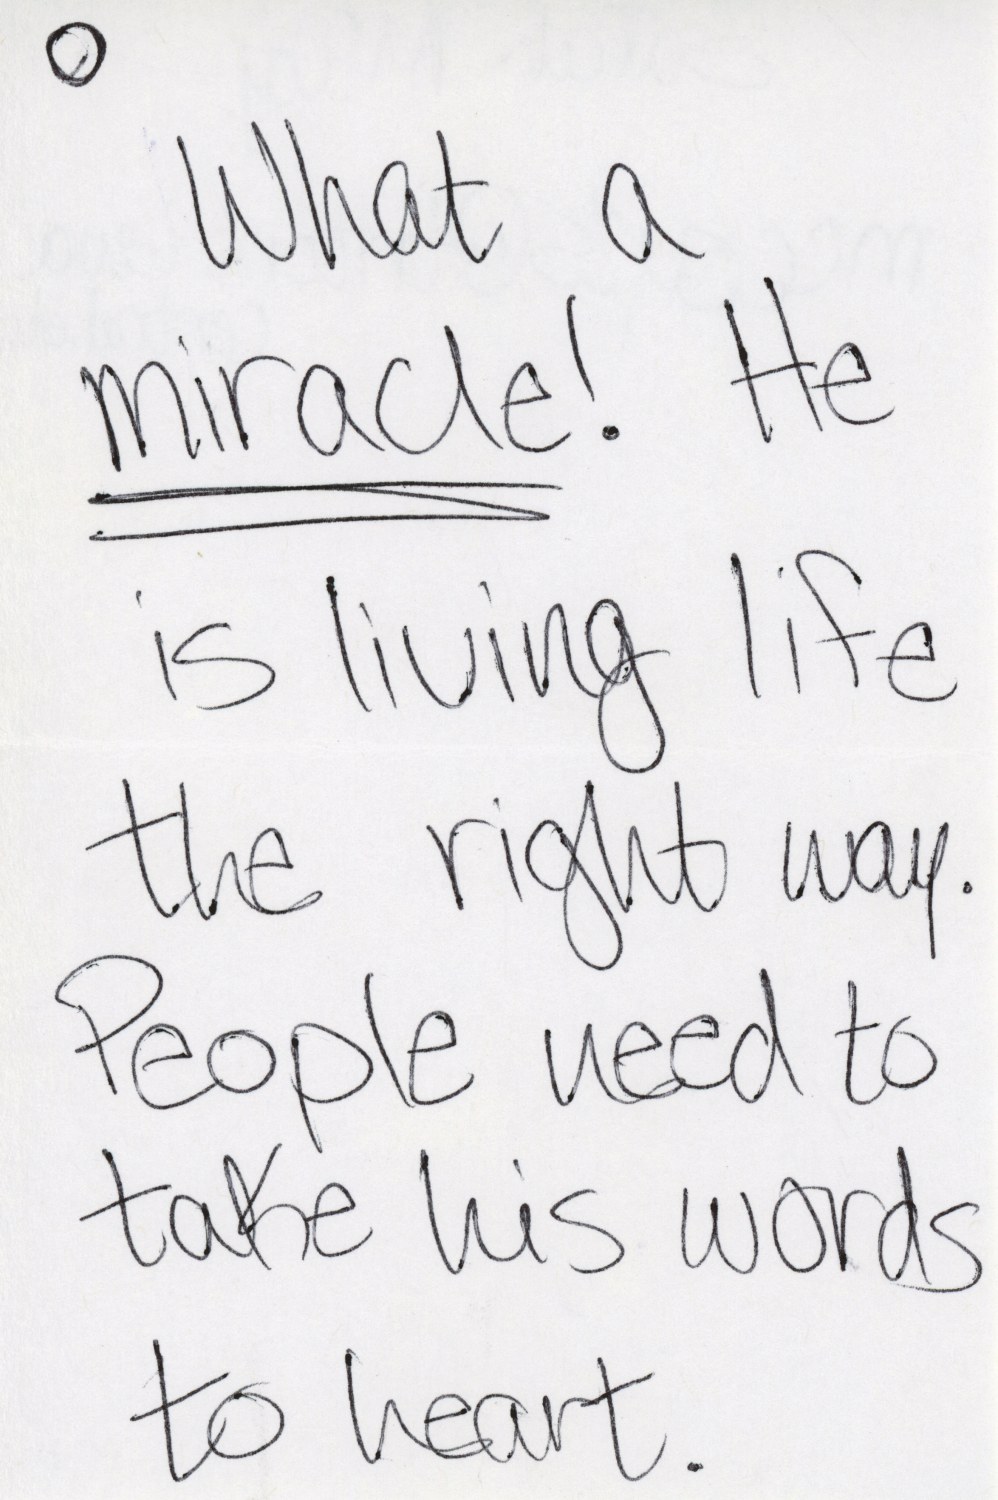 What a
miracle! He
is living life
the right way.
People need to
take his words
to heart.